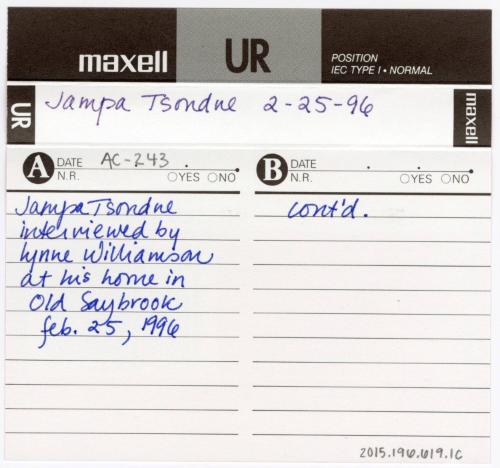 maxell UR POSITION
IEC TYPE I • NORMAL
UR Jampa Tsondue 2-25-96 maxell
A DATE AC-243
N.R. YES NO
Jampa Tsondue
interviewed by
Lynne Williamson
at his home in
Old Saybrook
feb. 25, 1996
B DATE
N.R. YES NO
cont'd.
2015.196.619.1c